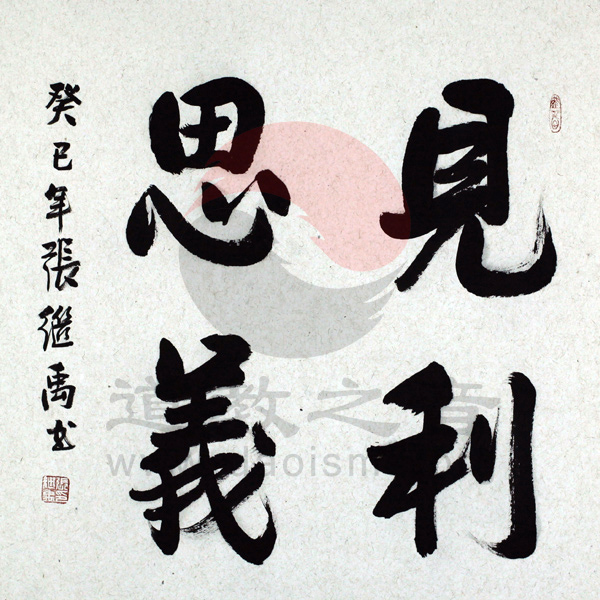 見利
思義
癸巳年張繼禹书
道教之音